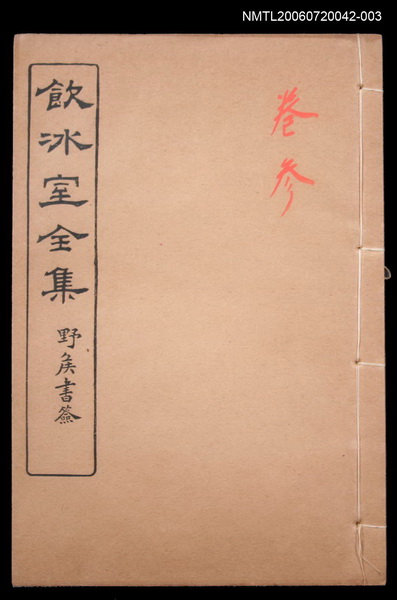 NMTL20060720042-003
卷參
飲冰室全集
野矦書簽